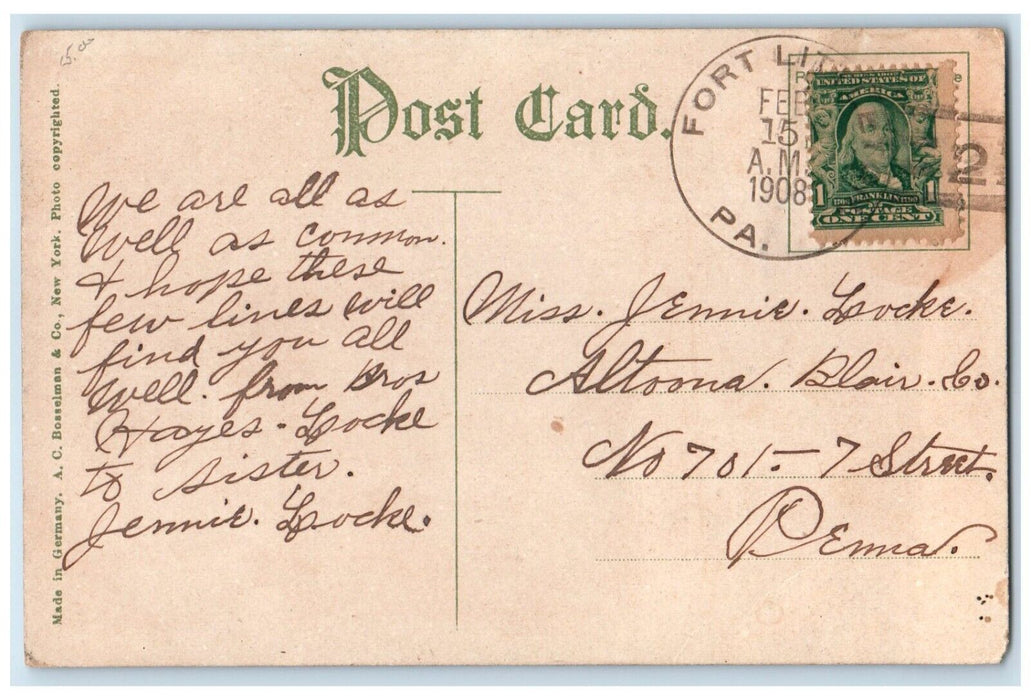 15.00
Post Card.
FORT LIT
FEB
15
A.M.
1908
PA.
UNITED STATES OF
AMERICA
1 FRANKLIN 1
POSTAGE
ONE CENT
2
We are all as
Well as common.
& hope these
few lines will
find you all
Well. from Bros
Hayes. Locke
to sister.
Jennie. Locke.
Miss. Jennie. Locke.
Altoona. Blair. Co.
No 701 - 7 Street.
Penna.
Made in Germany. A. C. Bosselman & Co., New York. Photo copyrighted.